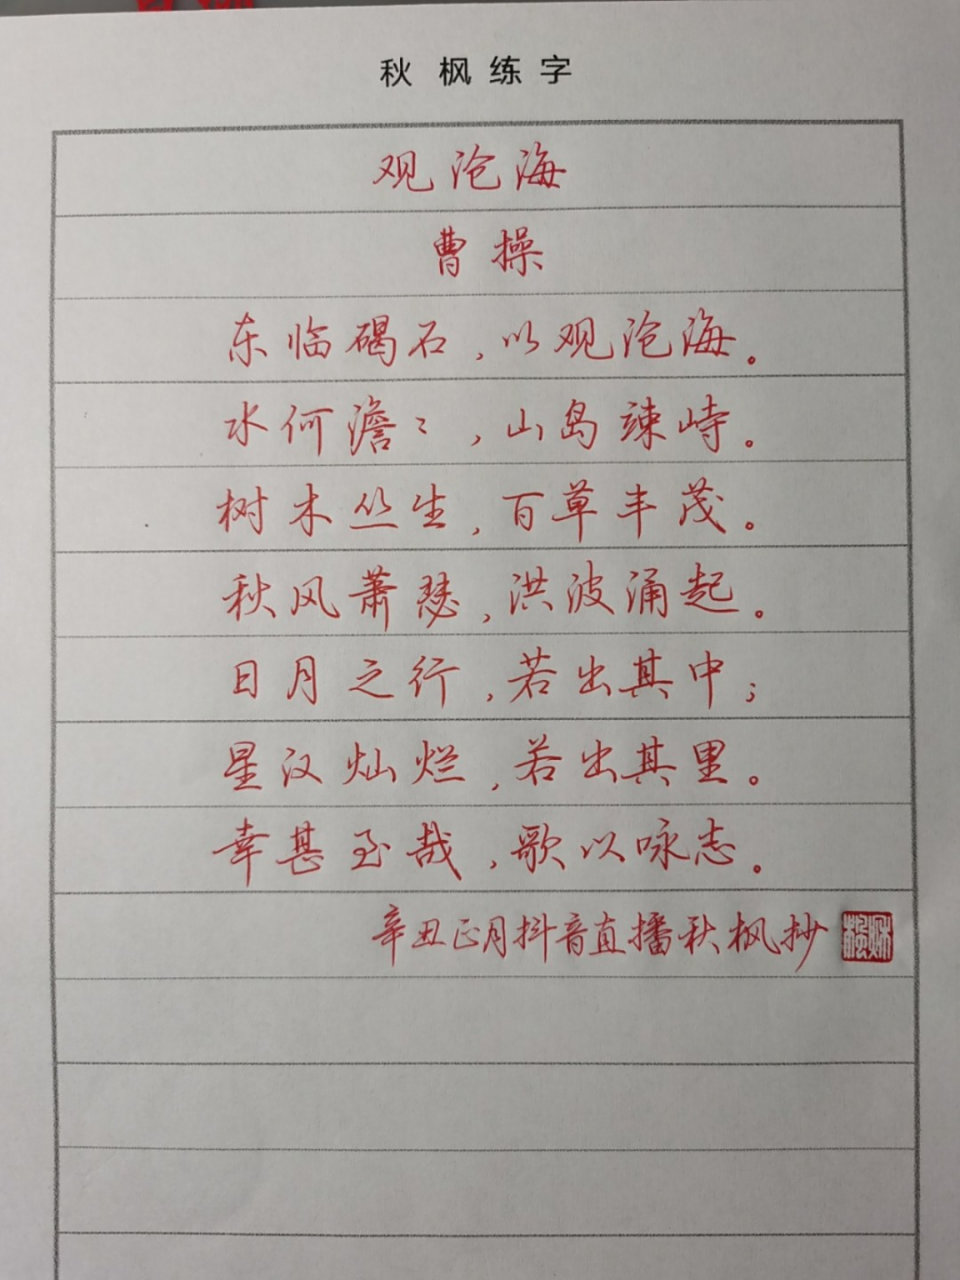 秋枫练字
观沧海
曹操
东临碣石，以观沧海。
水何澹〻，山岛竦峙。
树木丛生，百草丰茂。
秋风萧瑟，洪波涌起。
日月之行，若出其中；
星汉灿烂，若出其里。
幸甚至哉，歌以咏志。
辛丑正月抖音直播秋枫抄